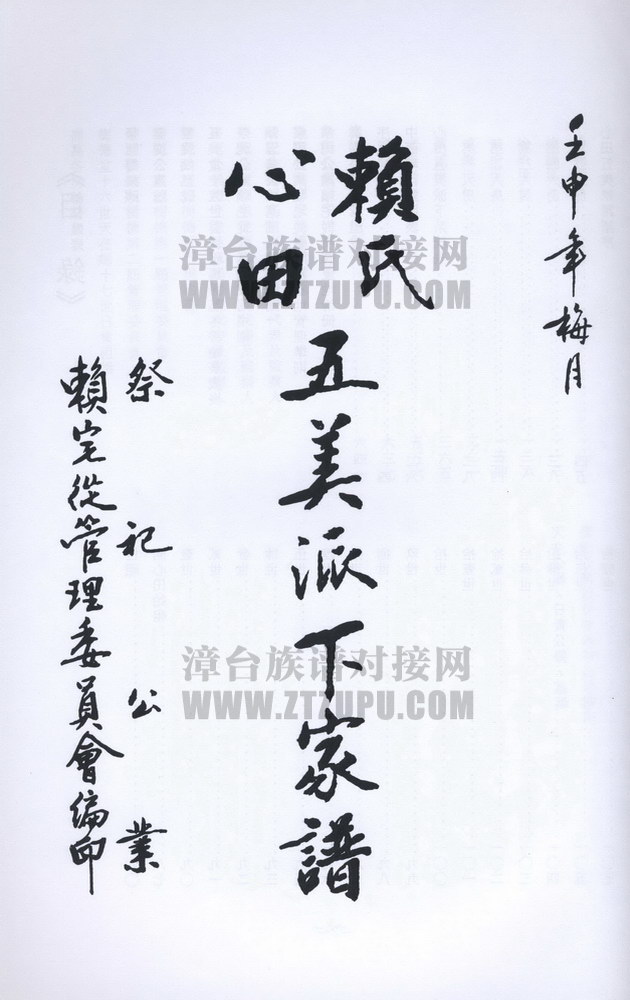 壬申年梅月
賴氏
心田
五美派下家譜
祭祀公業
賴宅從管理委員會編印
漳台族谱对接网
WWW.ZTZUPU.COM
漳台族谱对接网
WWW.ZTZUPU.COM